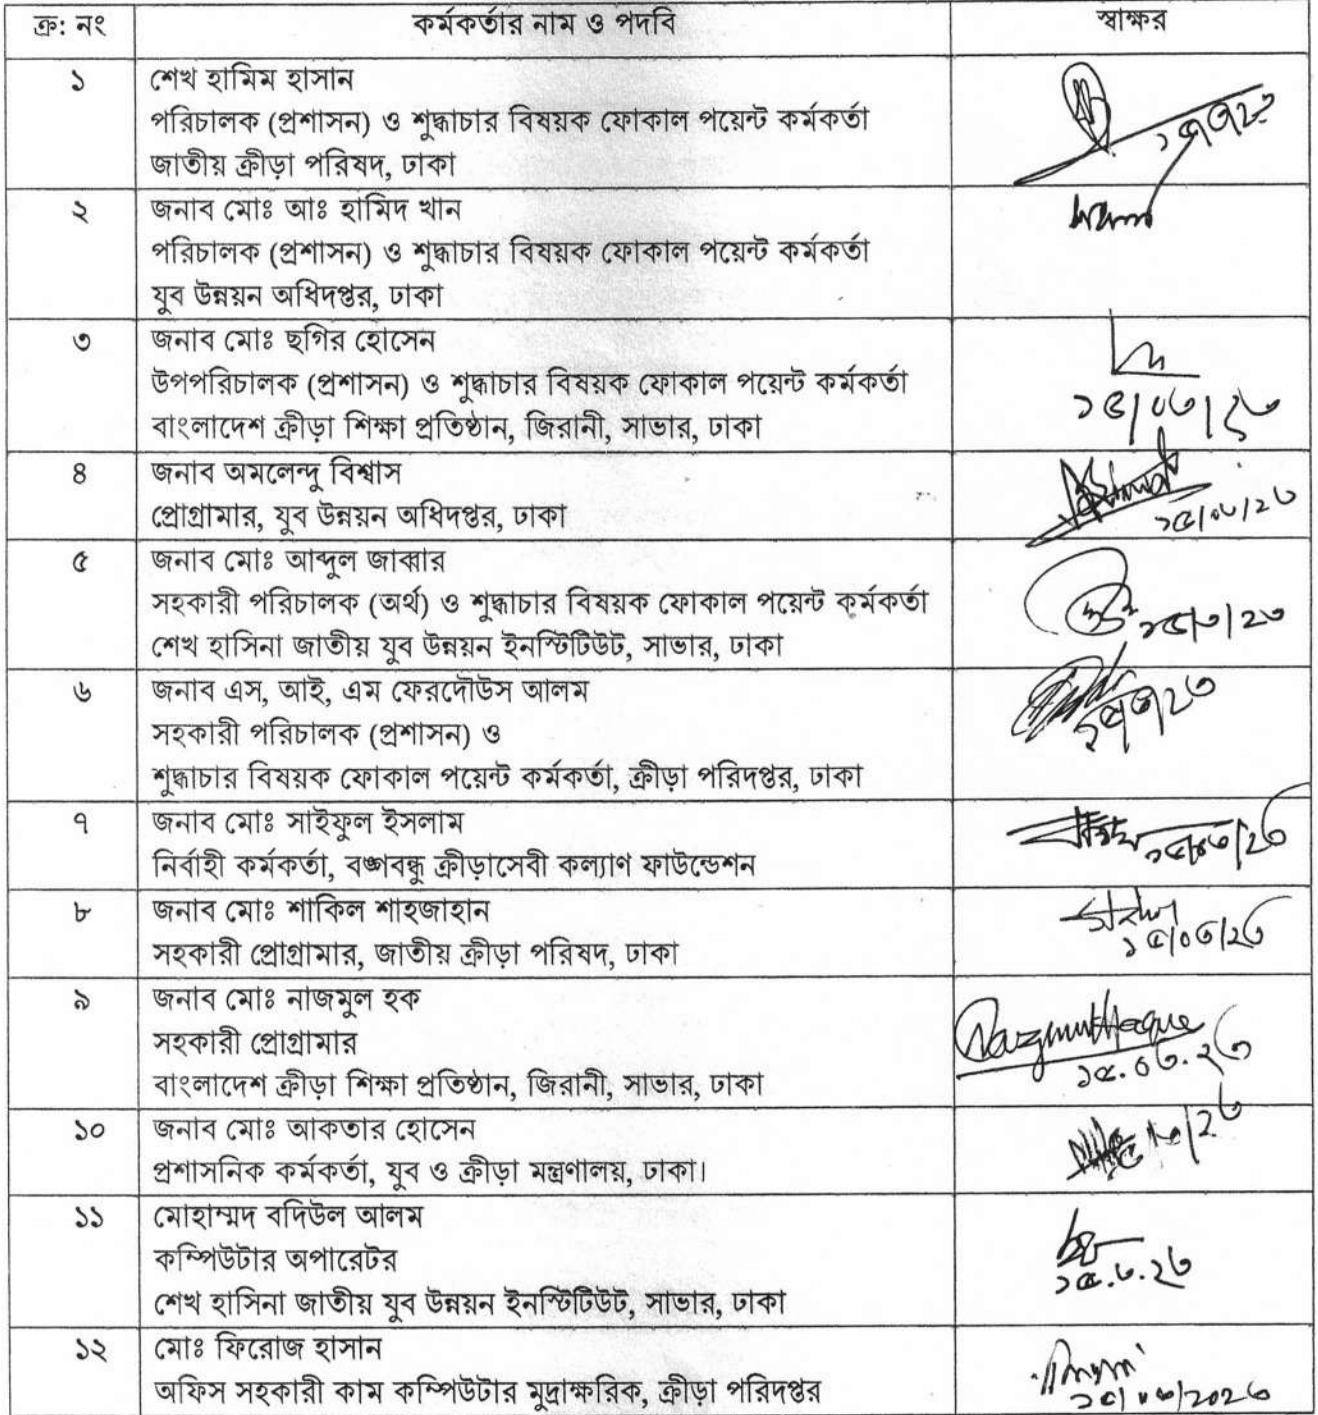 ক্র: নং কর্মকর্তার নাম ও পদবি স্বাক্ষর
১ শেখ হামিম হাসান
পরিচালক (প্রশাসন) ও শুদ্ধাচার বিষয়ক ফোকাল পয়েন্ট কর্মকর্তা
জাতীয় ক্রীড়া পরিষদ, ঢাকা
২ জনাব মোঃ আঃ হামিদ খান
পরিচালক (প্রশাসন) ও শুদ্ধাচার বিষয়ক ফোকাল পয়েন্ট কর্মকর্তা
যুব উন্নয়ন অধিদপ্তর, ঢাকা
৩ জনাব মোঃ ছগির হোসেন
উপপরিচালক (প্রশাসন) ও শুদ্ধাচার বিষয়ক ফোকাল পয়েন্ট কর্মকর্তা
বাংলাদেশ ক্রীড়া শিক্ষা প্রতিষ্ঠান, জিরানী, সাভার, ঢাকা
১৫/০৩/২৩
৪ জনাব অমলেন্দু বিশ্বাস
প্রোগ্রামার, যুব উন্নয়ন অধিদপ্তর, ঢাকা
১৫/০৩/২৩
৫ জনাব মোঃ আব্দুল জাব্বার
সহকারী পরিচালক (অর্থ) ও শুদ্ধাচার বিষয়ক ফোকাল পয়েন্ট কর্মকর্তা
১৫/৩/২৩
শেখ হাসিনা জাতীয় যুব উন্নয়ন ইনস্টিটিউট, সাভার, ঢাকা
৬ জনাব এস, আই, এম ফেরদৌউস আলম
সহকারী পরিচালক (প্রশাসন) ও
শুদ্ধাচার বিষয়ক ফোকাল পয়েন্ট কর্মকর্তা, ক্রীড়া পরিদপ্তর, ঢাকা
৭ জনাব মোঃ সাইফুল ইসলাম
নির্বাহী কর্মকর্তা, বঙ্গবন্ধু ক্রীড়াসেবী কল্যাণ ফাউন্ডেশন
১৫/০৩/২৩
৮ জনাব মোঃ শাকিল শাহজাহান
সহকারী প্রোগ্রামার, জাতীয় ক্রীড়া পরিষদ, ঢাকা
১৫/০৩/২৩
৯ জনাব মোঃ নাজমুল হক
সহকারী প্রোগ্রামার
Nazmul Haque
বাংলাদেশ ক্রীড়া শিক্ষা প্রতিষ্ঠান, জিরানী, সাভার, ঢাকা
১৫.০৩.২৩
১০ জনাব মোঃ আকতার হোসেন
প্রশাসনিক কর্মকর্তা, যুব ও ক্রীড়া মন্ত্রণালয়, ঢাকা।
১১ মোহাম্মদ বদিউল আলম
কম্পিউটার অপারেটর
শেখ হাসিনা জাতীয় যুব উন্নয়ন ইনস্টিটিউট, সাভার, ঢাকা
১৫.৩.২৩
১২ মোঃ ফিরোজ হাসান
অফিস সহকারী কাম কম্পিউটার মুদ্রাক্ষরিক, ক্রীড়া পরিদপ্তর
১৫/০৩/২০২৩